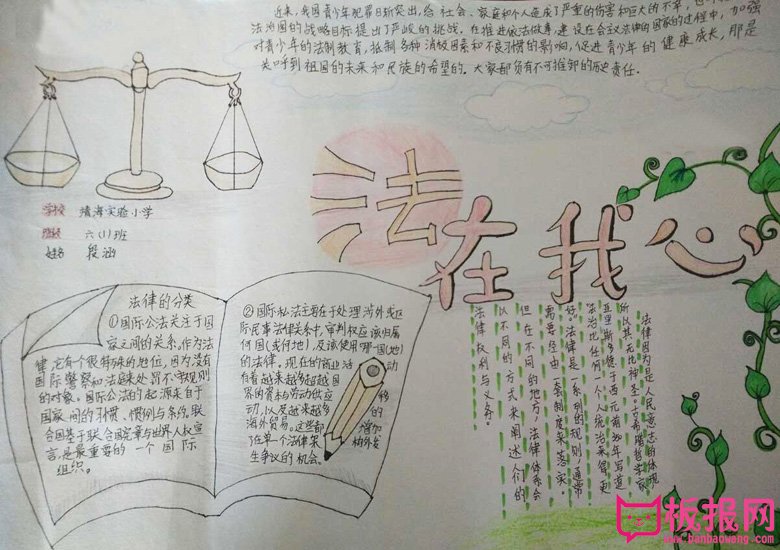 近来,我国青少年犯罪日新突出,给社会、家庭和个人造成了严重的伤害和巨大的不幸,也
法治国的战略目标提出了严峻的挑战。在推进依法做事,建设社会主义法律的国家的过程中,加强
对青少年的法制教育,抵制各种消极因素和不良习惯的影响,促进青少年的健康成长,那是
关呼到祖国的未来和民族的希望的。大家都负有不可推卸的历史责任。
法在我心
学校 靖海实验小学
班级 六(1)班
姓名 段涵
法律的分类
①国际公法关注于国
家之间的关系,作为法
律它有个很特殊的地位,因为没有
国际警察和法庭来处罚不服规则
的对象。国际公法的起源来自于
国家间的习惯、惯例与条约,联
合国基于联合国宪章与世界人权宣
言,是最重要的一个国际
组织。
②国际私法主要在于处理涉外或区
际民事法律关系中,审判权应该归属
何国(或付地),及该使用哪一国(地)
的法律。现在的商业活动
有着越来越多超越国
界的资本与劳动供应移
动,以及越来越多的
海外贸易。这些都增加
了在单个法律架构外发
生争议的机会。
法律因为是人民意志的体现
所以其无比神圣。古希腊哲学家
亚里斯多德于西元前350年写道
法治比任何一个人统治来得更
好。法律是一系列的规则,通常
需要经由一套制度来落实
但在不同的地方,法律体系会
以不同的方式来阐述人们的
法律权利与义务。
板报网
www.banbaowang.com